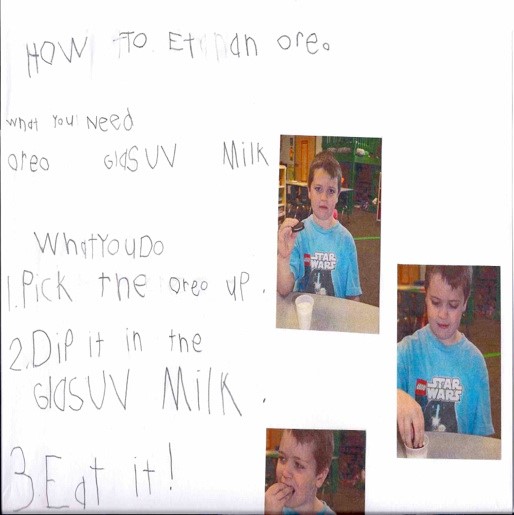 HOW TO Et an oreo
What You Need
oreo GlaSUV Milk
What You Do
1. Pick the oreo up.
2. Dip it in the
GlaSUV Milk.
3. Eat it!
STAR WARS
LEGO STAR WARS